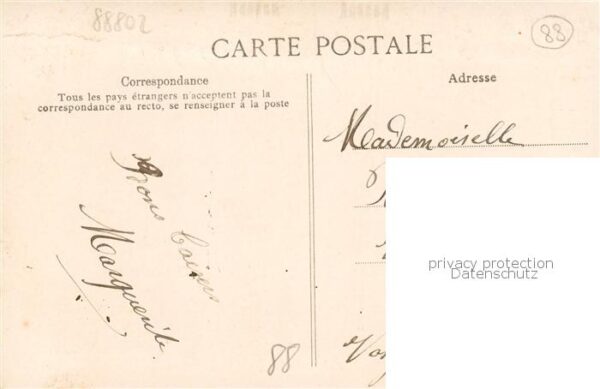 88802
88
CARTE POSTALE
Correspondance
Tous les pays étrangers n'acceptent pas la
correspondance au recto, se renseigner à la poste
Adresse
Mademoiselle
Bons baisers
Marguerite
privacy protection
Datenschutz
88